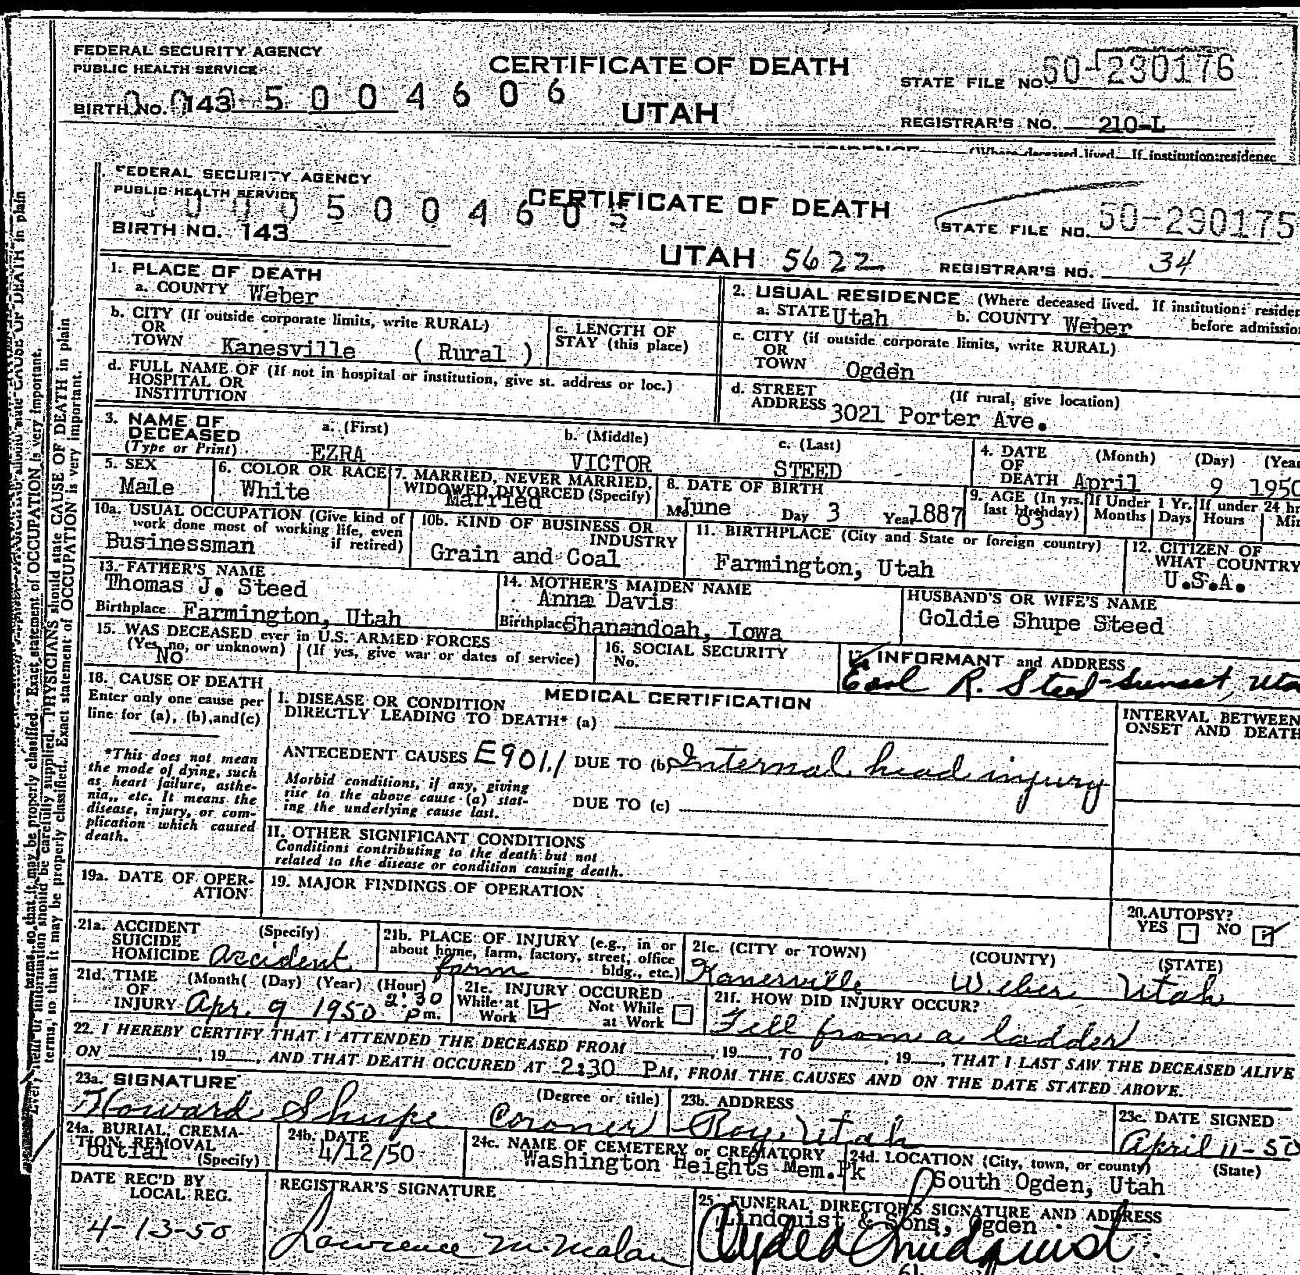 FEDERAL SECURITY AGENCY
PUBLIC HEALTH SERVICE
CERTIFICATE OF DEATH
STATE FILE NO. 50-290176
BIRTH NO. 143 0005004606
UTAH
REGISTRAR'S NO. 210-L
FEDERAL SECURITY AGENCY
PUBLIC HEALTH SERVICE
0005004605
CERTIFICATE OF DEATH
STATE FILE NO. 50-290175
BIRTH NO. 143
UTAH 5622
REGISTRAR'S NO. 34
1. PLACE OF DEATH
a. COUNTY Weber
2. USUAL RESIDENCE (Where deceased lived. If institution: residen
a. STATE Utah b. COUNTY Weber before admission
b. CITY (If outside corporate limits, write RURAL)
OR
TOWN Kanesville ( Rural )
c. LENGTH OF
STAY (this place)
c. CITY (if outside corporate limits, write RURAL)
OR
TOWN Ogden
d. FULL NAME OF (If not in hospital or institution, give st. address or loc.)
HOSPITAL OR
INSTITUTION
d. STREET (If rural, give location)
ADDRESS 3021 Porter Ave.
3. NAME OF
DECEASED
(Type or Print)
a. (First) b. (Middle) c. (Last)
EZRA VICTOR STEED
4. DATE (Month) (Day) (Year
OF
DEATH April 9 1950
5. SEX
Male
6. COLOR OR RACE
White
7. MARRIED, NEVER MARRIED,
WIDOWED, DIVORCED (Specify)
Married
8. DATE OF BIRTH
Mo June Day 3 Year 1887
9. AGE (In yrs. last birthday) 63
If Under 1 Yr. Months Days
If under 24 hr Hours Min
10a. USUAL OCCUPATION (Give kind of
work done most of working life, even
if retired)
Businessman
10b. KIND OF BUSINESS OR
INDUSTRY
Grain and Coal
11. BIRTHPLACE (City and State or foreign country)
Farmington, Utah
12. CITIZEN OF
WHAT COUNTRY
U.S.A.
13. FATHER'S NAME
Thomas J. Steed
Birthplace Farmington, Utah
14. MOTHER'S MAIDEN NAME
Anna Davis
Birthplace Shanandoah, Iowa
HUSBAND'S OR WIFE'S NAME
Goldie Shupe Steed
15. WAS DECEASED ever in U.S. ARMED FORCES
(Yes, no, or unknown) (If yes, give war or dates of service)
No
16. SOCIAL SECURITY
No.
17. INFORMANT and ADDRESS
Earl R. Steed - Sunset, Utah
18. CAUSE OF DEATH
Enter only one cause per
line for (a), (b), and (c)
*This does not mean
the mode of dying, such
as heart failure, asthe-
nia, etc. It means the
disease, injury, or com-
plication which caused
death.
MEDICAL CERTIFICATION
I. DISEASE OR CONDITION
DIRECTLY LEADING TO DEATH* (a)
ANTECEDENT CAUSES E901.1 DUE TO (b) Internal head injury
Morbid conditions, if any, giving
rise to the above cause (a) stat-
ing the underlying cause last.
DUE TO (c)
INTERVAL BETWEEN
ONSET AND DEATH
II. OTHER SIGNIFICANT CONDITIONS
Conditions contributing to the death but not
related to the disease or condition causing death.
19a. DATE OF OPER-
ATION
19. MAJOR FINDINGS OF OPERATION
20. AUTOPSY?
YES NO
21a. ACCIDENT (Specify)
SUICIDE
HOMICIDE accident
21b. PLACE OF INJURY (e.g., in or
about home, farm, factory, street, office
bldg., etc.)
farm
21c. (CITY or TOWN) (COUNTY) (STATE)
Kanesville Weber Utah
21d. TIME (Month) (Day) (Year) (Hour)
OF
INJURY Apr. 9 1950 2:30 Pm.
21e. INJURY OCCURED
While at Work Not While at Work
21f. HOW DID INJURY OCCUR?
Fell from a ladder
22. I HEREBY CERTIFY THAT I ATTENDED THE DECEASED FROM , 19 , TO , 19 , THAT I LAST SAW THE DECEASED ALIVE
ON , 19 , AND THAT DEATH OCCURED AT 2:30 P M, FROM THE CAUSES AND ON THE DATE STATED ABOVE.
23a. SIGNATURE (Degree or title)
Howard Shupe Coroner
23b. ADDRESS
Roy, Utah
23c. DATE SIGNED
April 11-50
24a. BURIAL, CREMA-
TION, REMOVAL
(Specify)
burial
24b. DATE
4/12/50
24c. NAME OF CEMETERY or CREMATORY
Washington Heights Mem. Pk
24d. LOCATION (City, town, or county) (State)
South Ogden, Utah
DATE REC'D BY
LOCAL REG.
4-13-50
REGISTRAR'S SIGNATURE
Lawrence M. Malan
25. FUNERAL DIRECTOR'S SIGNATURE AND ADDRESS
Lindquist & Sons, Ogden
Clyde A Lindquist